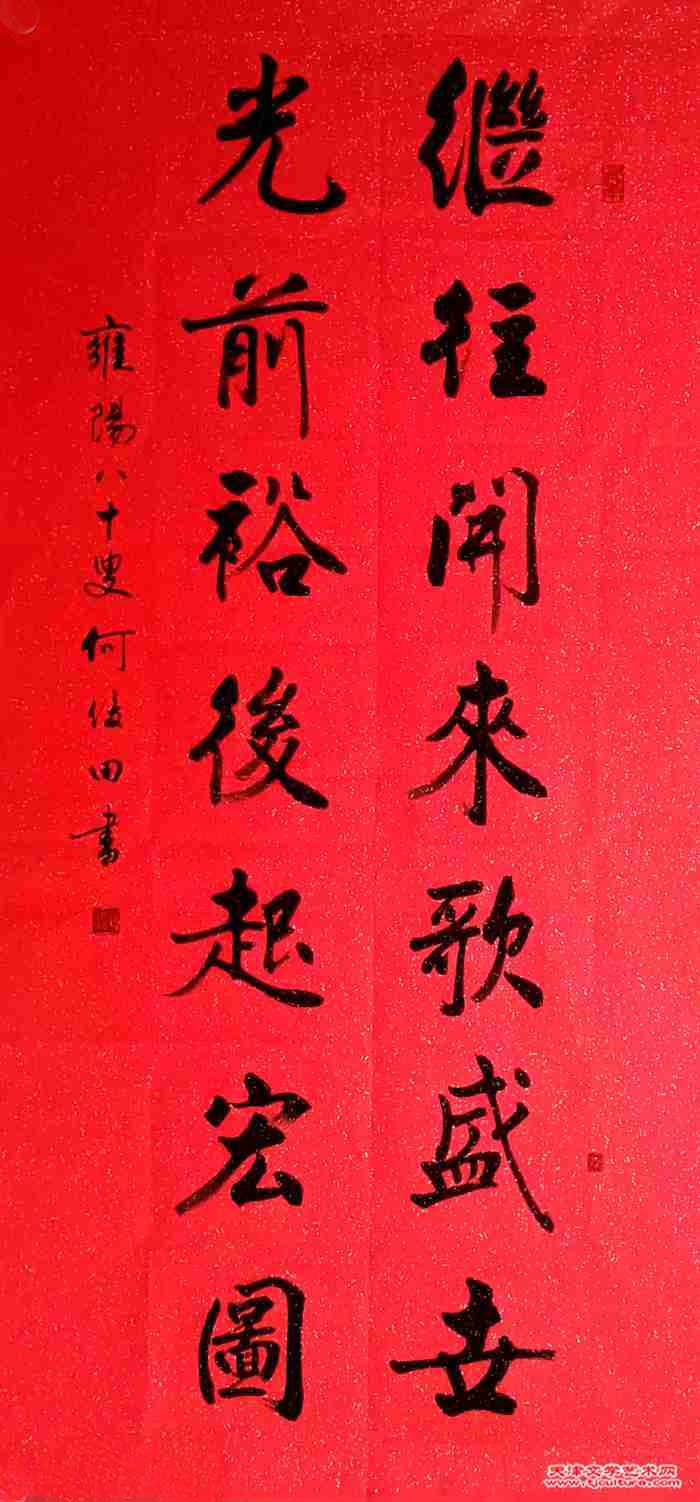 繼往開來歌盛世
光前裕後起宏圖
雍陽八十叟何俊田書
天津文学艺术网
www.tjculture.com